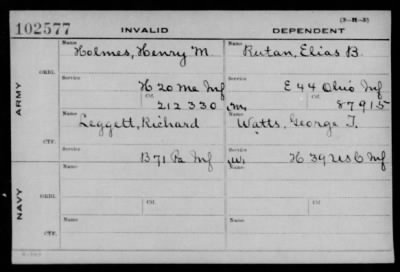 (3-H-3)
102577 INVALID DEPENDENT
Name Name
Holmes, Henry M. Rutan, Elias B.
ORIG. Service Service
H 20 Me Inf E 44 Ohio Inf
Ctf. Ctf.
212330 M, 87915
ARMY
Name Name
Leggett, Richard Watts, George T.
CTF. Service Service
B 71 Pa Inf W, H 39 US C Inf
Name Name
ORIG. Service Service
Ctf. Ctf.
NAVY
Name Name
CTF. Service Service